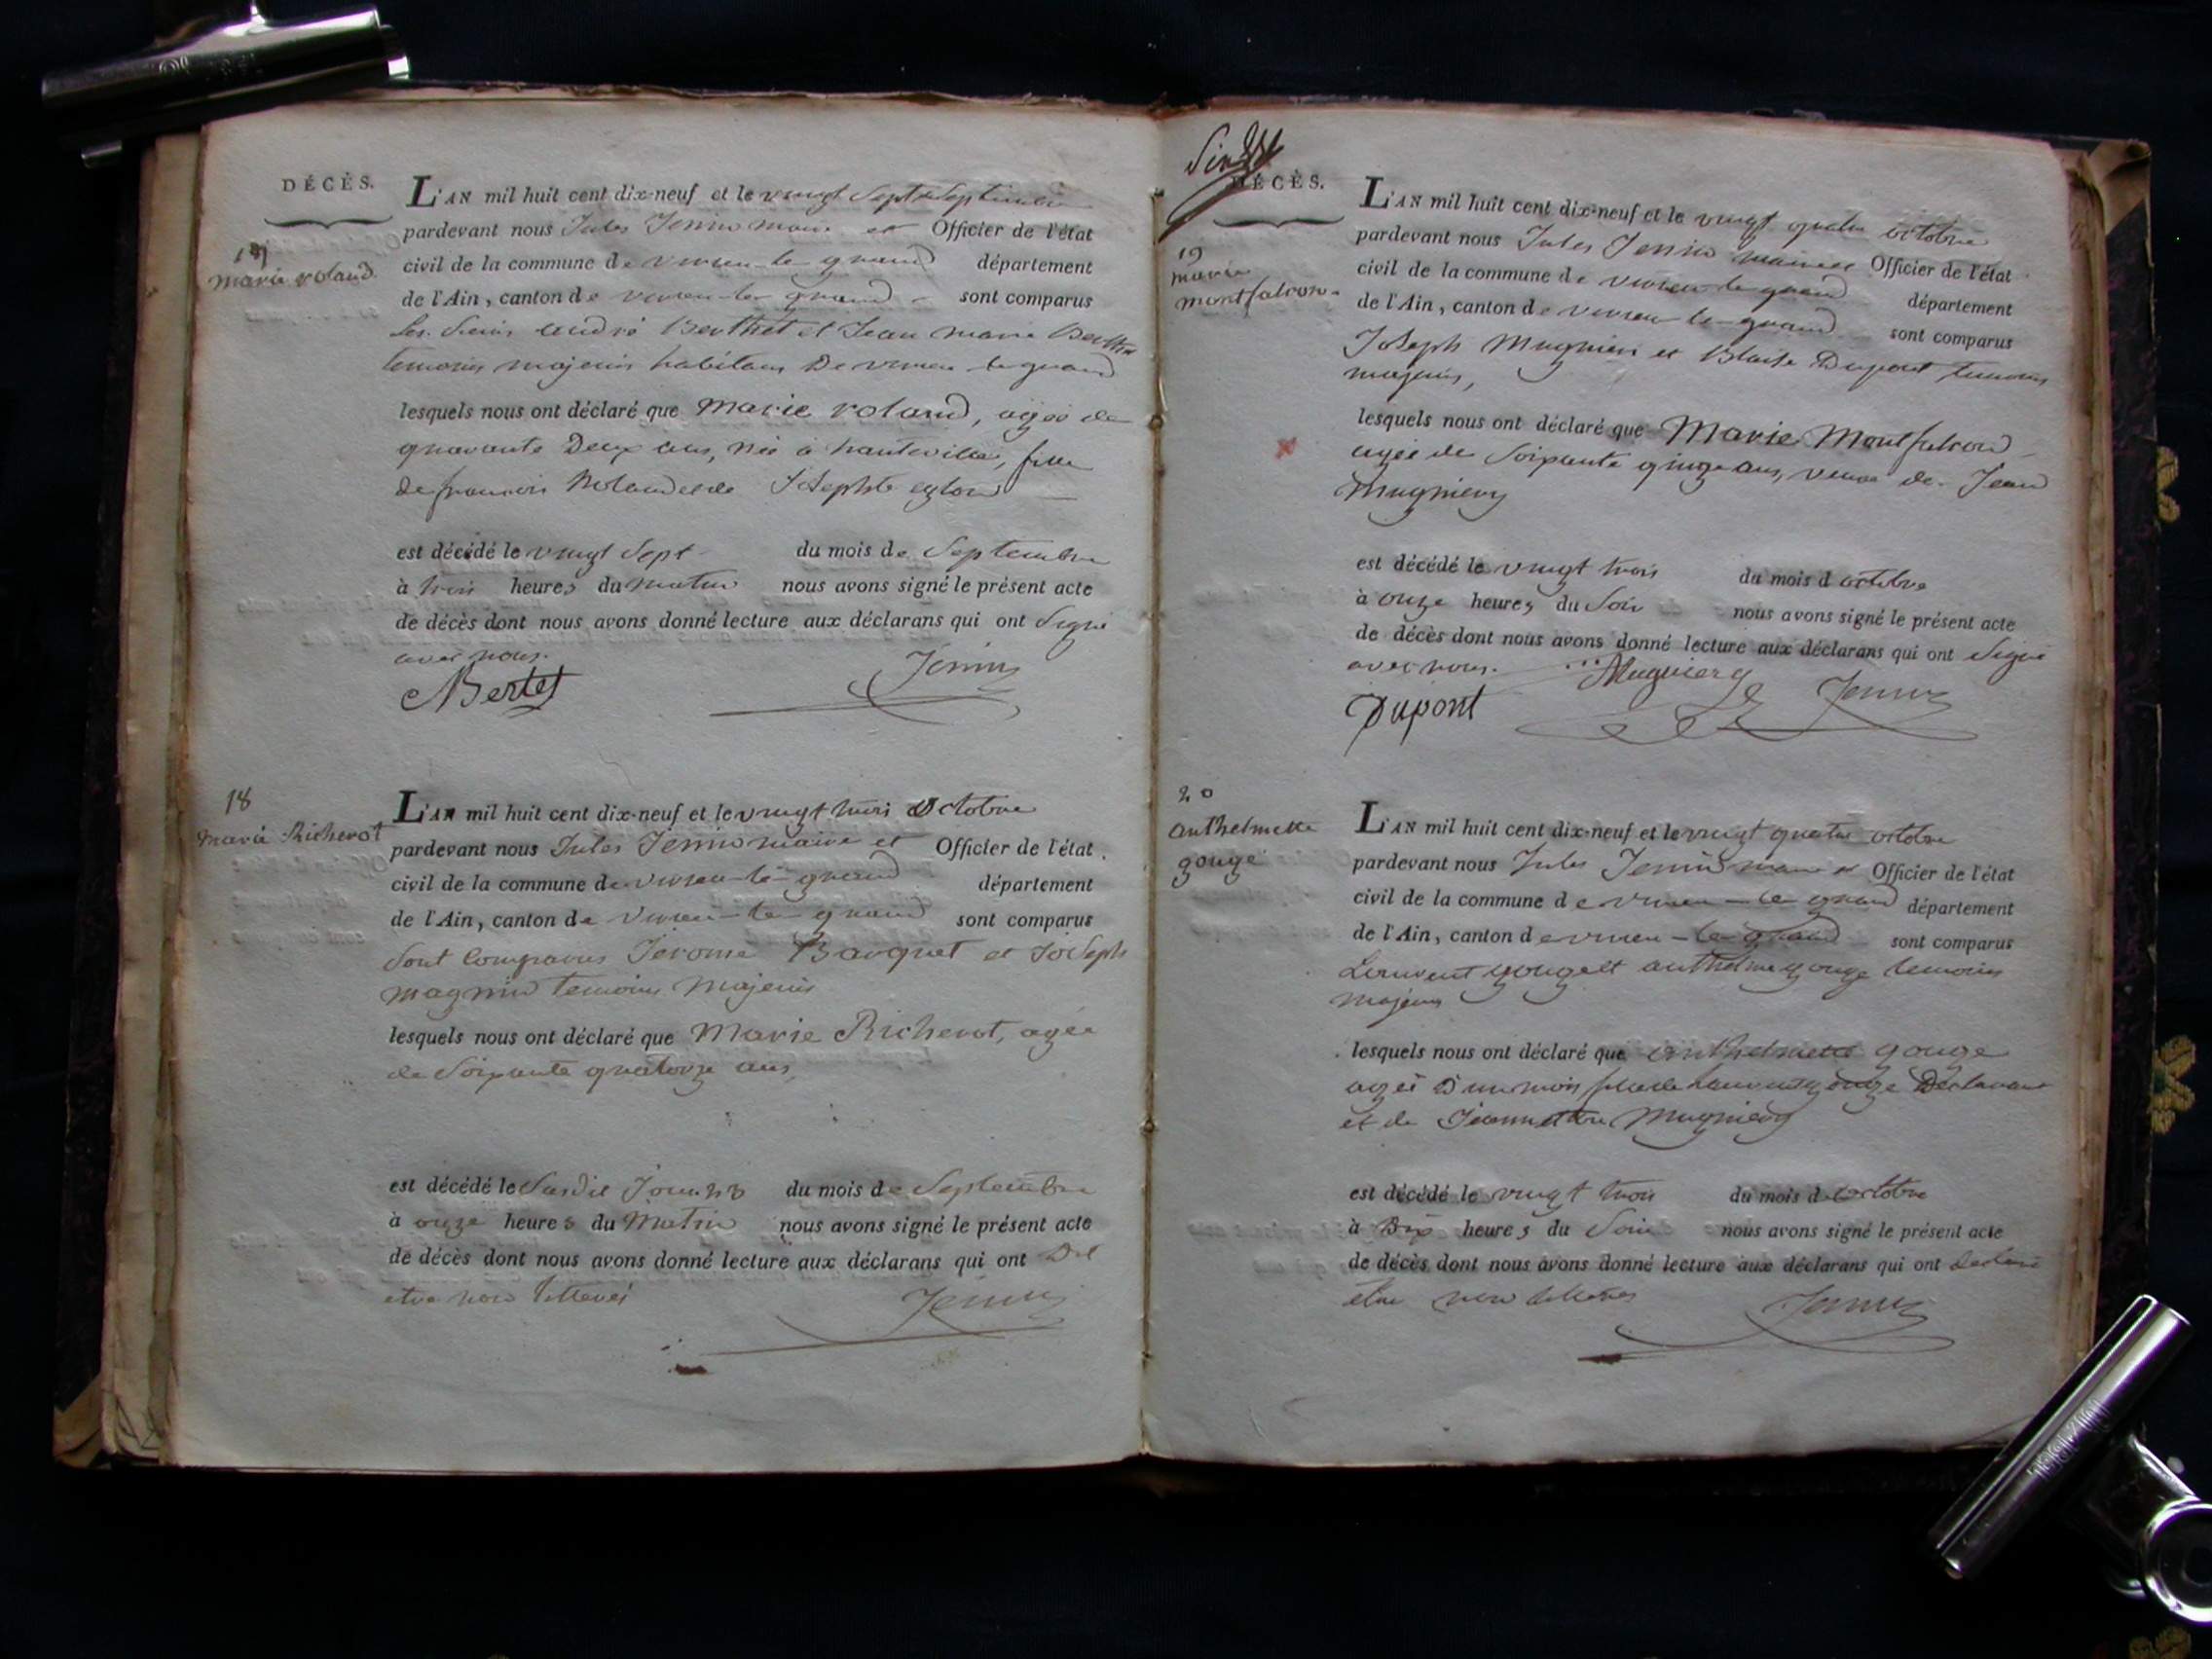 DÉCÈS.
marie roland
L'AN mil huit cent dix-neuf et le vingt Sept Septembre
pardevant nous Jules Jenin maire et Officier de l'état
civil de la commune de virieu-le-grand département
de l'Ain, canton de virieu-le-grand sont comparus
les Sieurs andré Berthet et Jean marie Berthet
temoins majeurs habitans De virieu le grand
lesquels nous ont déclaré que Marie roland, agée de
quarante Deux ans, née à hauteville, fille
de francois Roland et de Josephte
est décédé le vingt Sept du mois de Septembre
à trois heures du matin nous avons signé le présent acte
de décès dont nous avons donné lecture aux déclarans qui ont Signé
avec nous.
Bertet Jenin
18
marie Richerot
L'AN mil huit cent dix-neuf et le vingt trois Octobre
pardevant nous Jules Jenin maire et Officier de l'état
civil de la commune de virieu-le-grand département
de l'Ain, canton de Virieu-le-grand sont comparus
Sont Comparus Jerome Barquet et Joseph
magnin temoins Majeurs
lesquels nous ont déclaré que Marie Richerot, agée
de Soixante quatorze ans,
est décédé le Susdit Jour 23 du mois de Septembre
à onze heures du Matin nous avons signé le présent acte
de décès dont nous avons donné lecture aux déclarans qui ont Dit
etre non lettrés
Jenin
DÉCÈS.
19
marie
montfalcon
L'AN mil huit cent dix-neuf et le vingt quatre octobre
pardevant nous Jules Jenin maire et Officier de l'état
civil de la commune de virieu le grand département
de l'Ain, canton de virieu le grand sont comparus
Joseph Mugnier et Blaise Dupont temoins
majeurs,
lesquels nous ont déclaré que Marie Montfalcon
agée de Soixante quinze ans, veuve de Jean
Mugniery
est décédé le vingt trois du mois d octobre
à onze heures du Soir nous avons signé le présent acte
de décès dont nous avons donné lecture aux déclarans qui ont Signé
avec nous. Mugniery
Dupont Jenin
20
anthelmette
gouge
L'AN mil huit cent dix-neuf et le vingt quatre octobre
pardevant nous Jules Jenin maire et Officier de l'état
civil de la commune de virieu-le-grand département
de l'Ain, canton de virieu-le-grand sont comparus
Laurent gouge et anthelme gouge temoins
majeurs
lesquels nous ont déclaré que anthelmette gouge
agée D'un mois fille de Laurent gouge Déclarant
et de Jeannette Mugniery
est décédé le vingt trois du mois d'octobre
à Dix heures du Soir nous avons signé le présent acte
de décès dont nous avons donné lecture aux déclarans qui ont declaré
etre non lettrés
Jenin